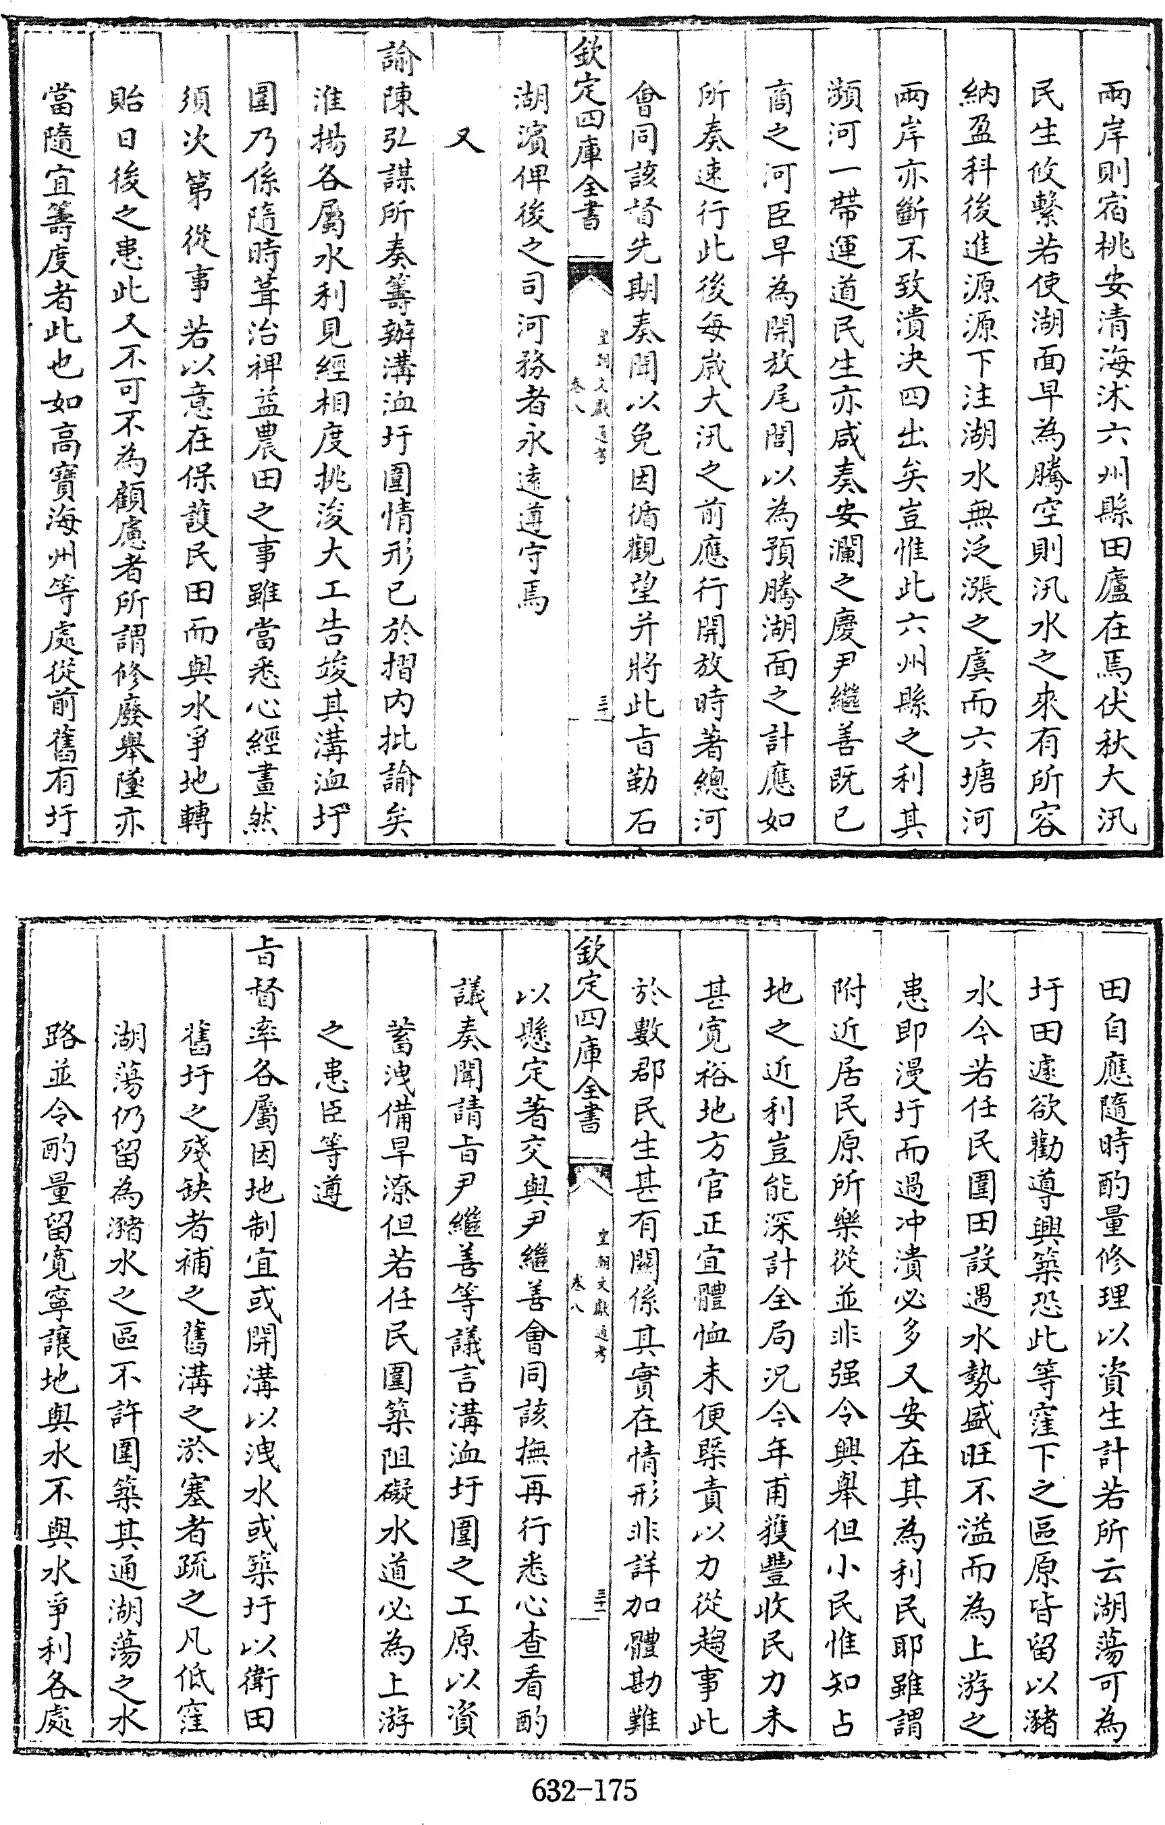 兩岸則宿桃安清海沭六州縣田廬在焉伏秋大汛
民生攸繫若使湖面早為騰空則汛水之來有所容
納盈科後進源源下注湖水無泛漲之虞而六塘河
兩岸亦斷不致潰决四出矣豈惟此六州縣之利其
瀕河一帶運道民生亦咸奏安瀾之慶尹繼善既已
商之河臣早為開放尾閭以為預騰湖面之計應如
所奏速行此後每歲大汛之前應行開放時著總河
會同該督先期奏聞以免因循觀望并將此㫖勒石
欽定四庫全書
皇朝文獻通考
卷八
三十
湖濱俾後之司河務者永遠遵守焉
又
諭陳弘謀所奏籌辦溝洫圩圍情形已於摺内批諭矣
淮揚各屬水利見經相度挑浚大工告竣其溝洫圩
圍乃係隨時葺治禆益農田之事雖當悉心經畫然
須次第從事若以意在保護民田而與水爭地轉
貽日後之患此又不可不為顧慮者所謂修廢舉墜亦
當隨宜籌度者此也如高寶海州等處從前舊有圩
田自應隨時酌量修理以資生計若所云湖蕩可為
圩田遽欲勸導興築恐此等窪下之區原皆留以瀦
水今若任民圍田設遇水勢盛旺不溢而為上游之
患即漫圩而過冲潰必多又安在其為利民耶雖謂
附近居民原所樂從並非强令興舉但小民惟知占
地之近利豈能深計全局况今年甫獲豐收民力未
甚寛裕地方官正宜體恤未便槩責以力從趨事此
於數郡民生甚有關係其實在情形非詳加體勘難
欽定四庫全書
皇朝文獻通考
卷八
三十一
以懸定著交與尹繼善會同該撫再行悉心查看酌
議奏聞請㫖尹繼善等議言溝洫圩圍之工原以資
蓄洩備旱潦但若任民圍築阻礙水道必為上游
之患臣等遵
㫖督率各屬因地制宜或開溝以洩水或築圩以衛田
舊圩之殘缺者補之舊溝之淤塞者疏之凡低窪
湖蕩仍留為瀦水之區不許圍築其通湖蕩之水
路並令酌量留寛寧讓地與水不與水爭利各處
632-175